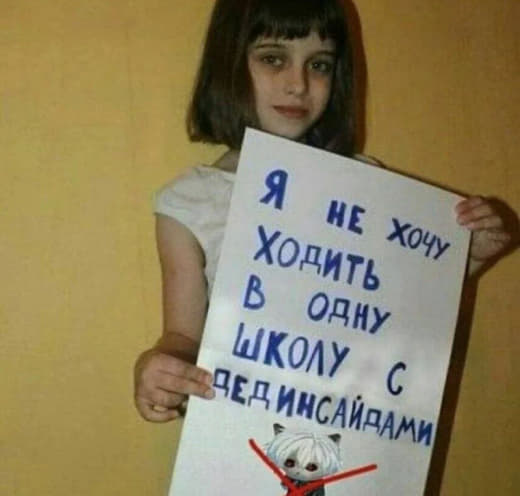 Я НЕ ХОЧУ
ХОДИТЬ
В ОДНУ
ШКОЛУ С
ДЕДИНСАЙДАМИ